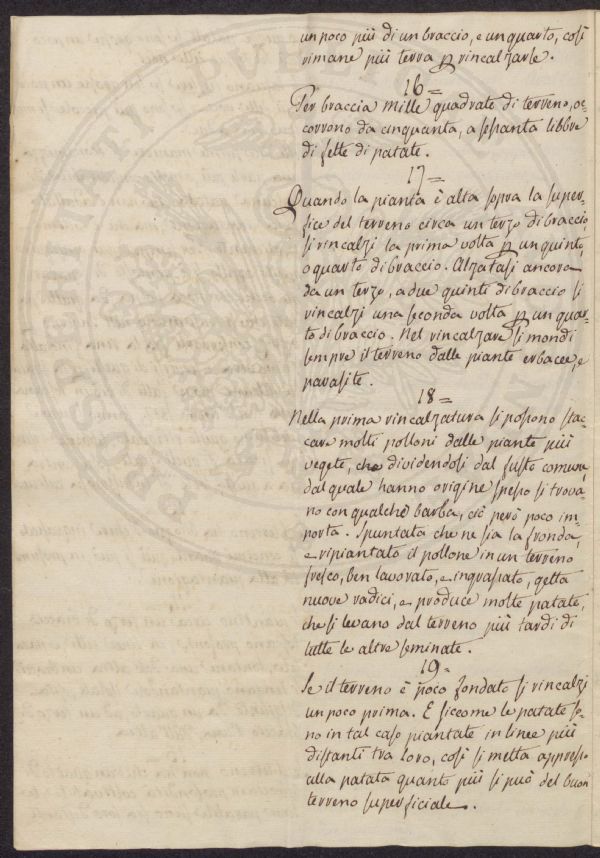 un poco più di un braccio, e un quarto, così
rimane più terra p rincalzarle.
16=
Per braccia mille quadrate di terreno, oc
corrono da cinquanta, a sessanta libbre
di fette di patate.
17=
Quando la pianta è alta sopra la super-
ficie del terreno circa un terzo di braccio,
si rincalzi la prima volta p un quinto,
o quarto di braccio. Alzatasi ancora
da un terzo, a due quinti di braccio si
rincalzi una seconda volta p un quar-
to di braccio. Nel rincalzare si mondi
sempre il terreno dalle piante erbacee, e
parasite.
18=
Nella prima rincalzatura si possono stac-
care molti polloni dalle piante più
vegete, che dividendosi dal fusto comune,
dal quale hanno origine spesso si trova-
no con qualche barba, ciò però poco im-
porta. Spuntata che ne sia la fronda,
e ripiantato il pollone in un terreno
fresco, ben lavorato, e ingrassato, getta
nuove radici, e produce molte patate,
che si levano dal terreno più tardi di
tutte le altre seminate.
19=
Se il terreno è poco fondato si rincalzi
un poco prima. E siccome le patate so-
no in tal caso piantate in linee più
distanti tra loro, così si metta appresso
alla patata quanto più si può del buon
terreno superficiale.